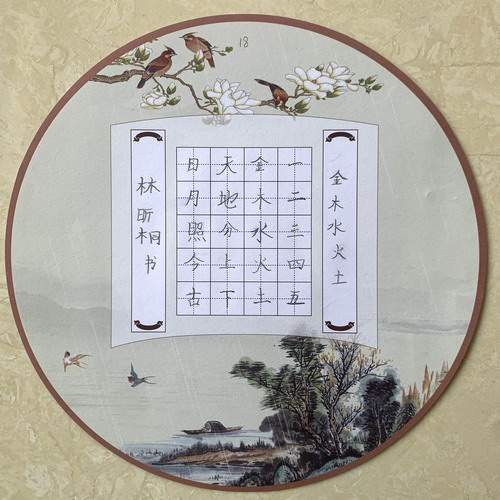 18
金木水火土
一二三四五
金木水火土
天地分上下
日月照今古
林昕桐书